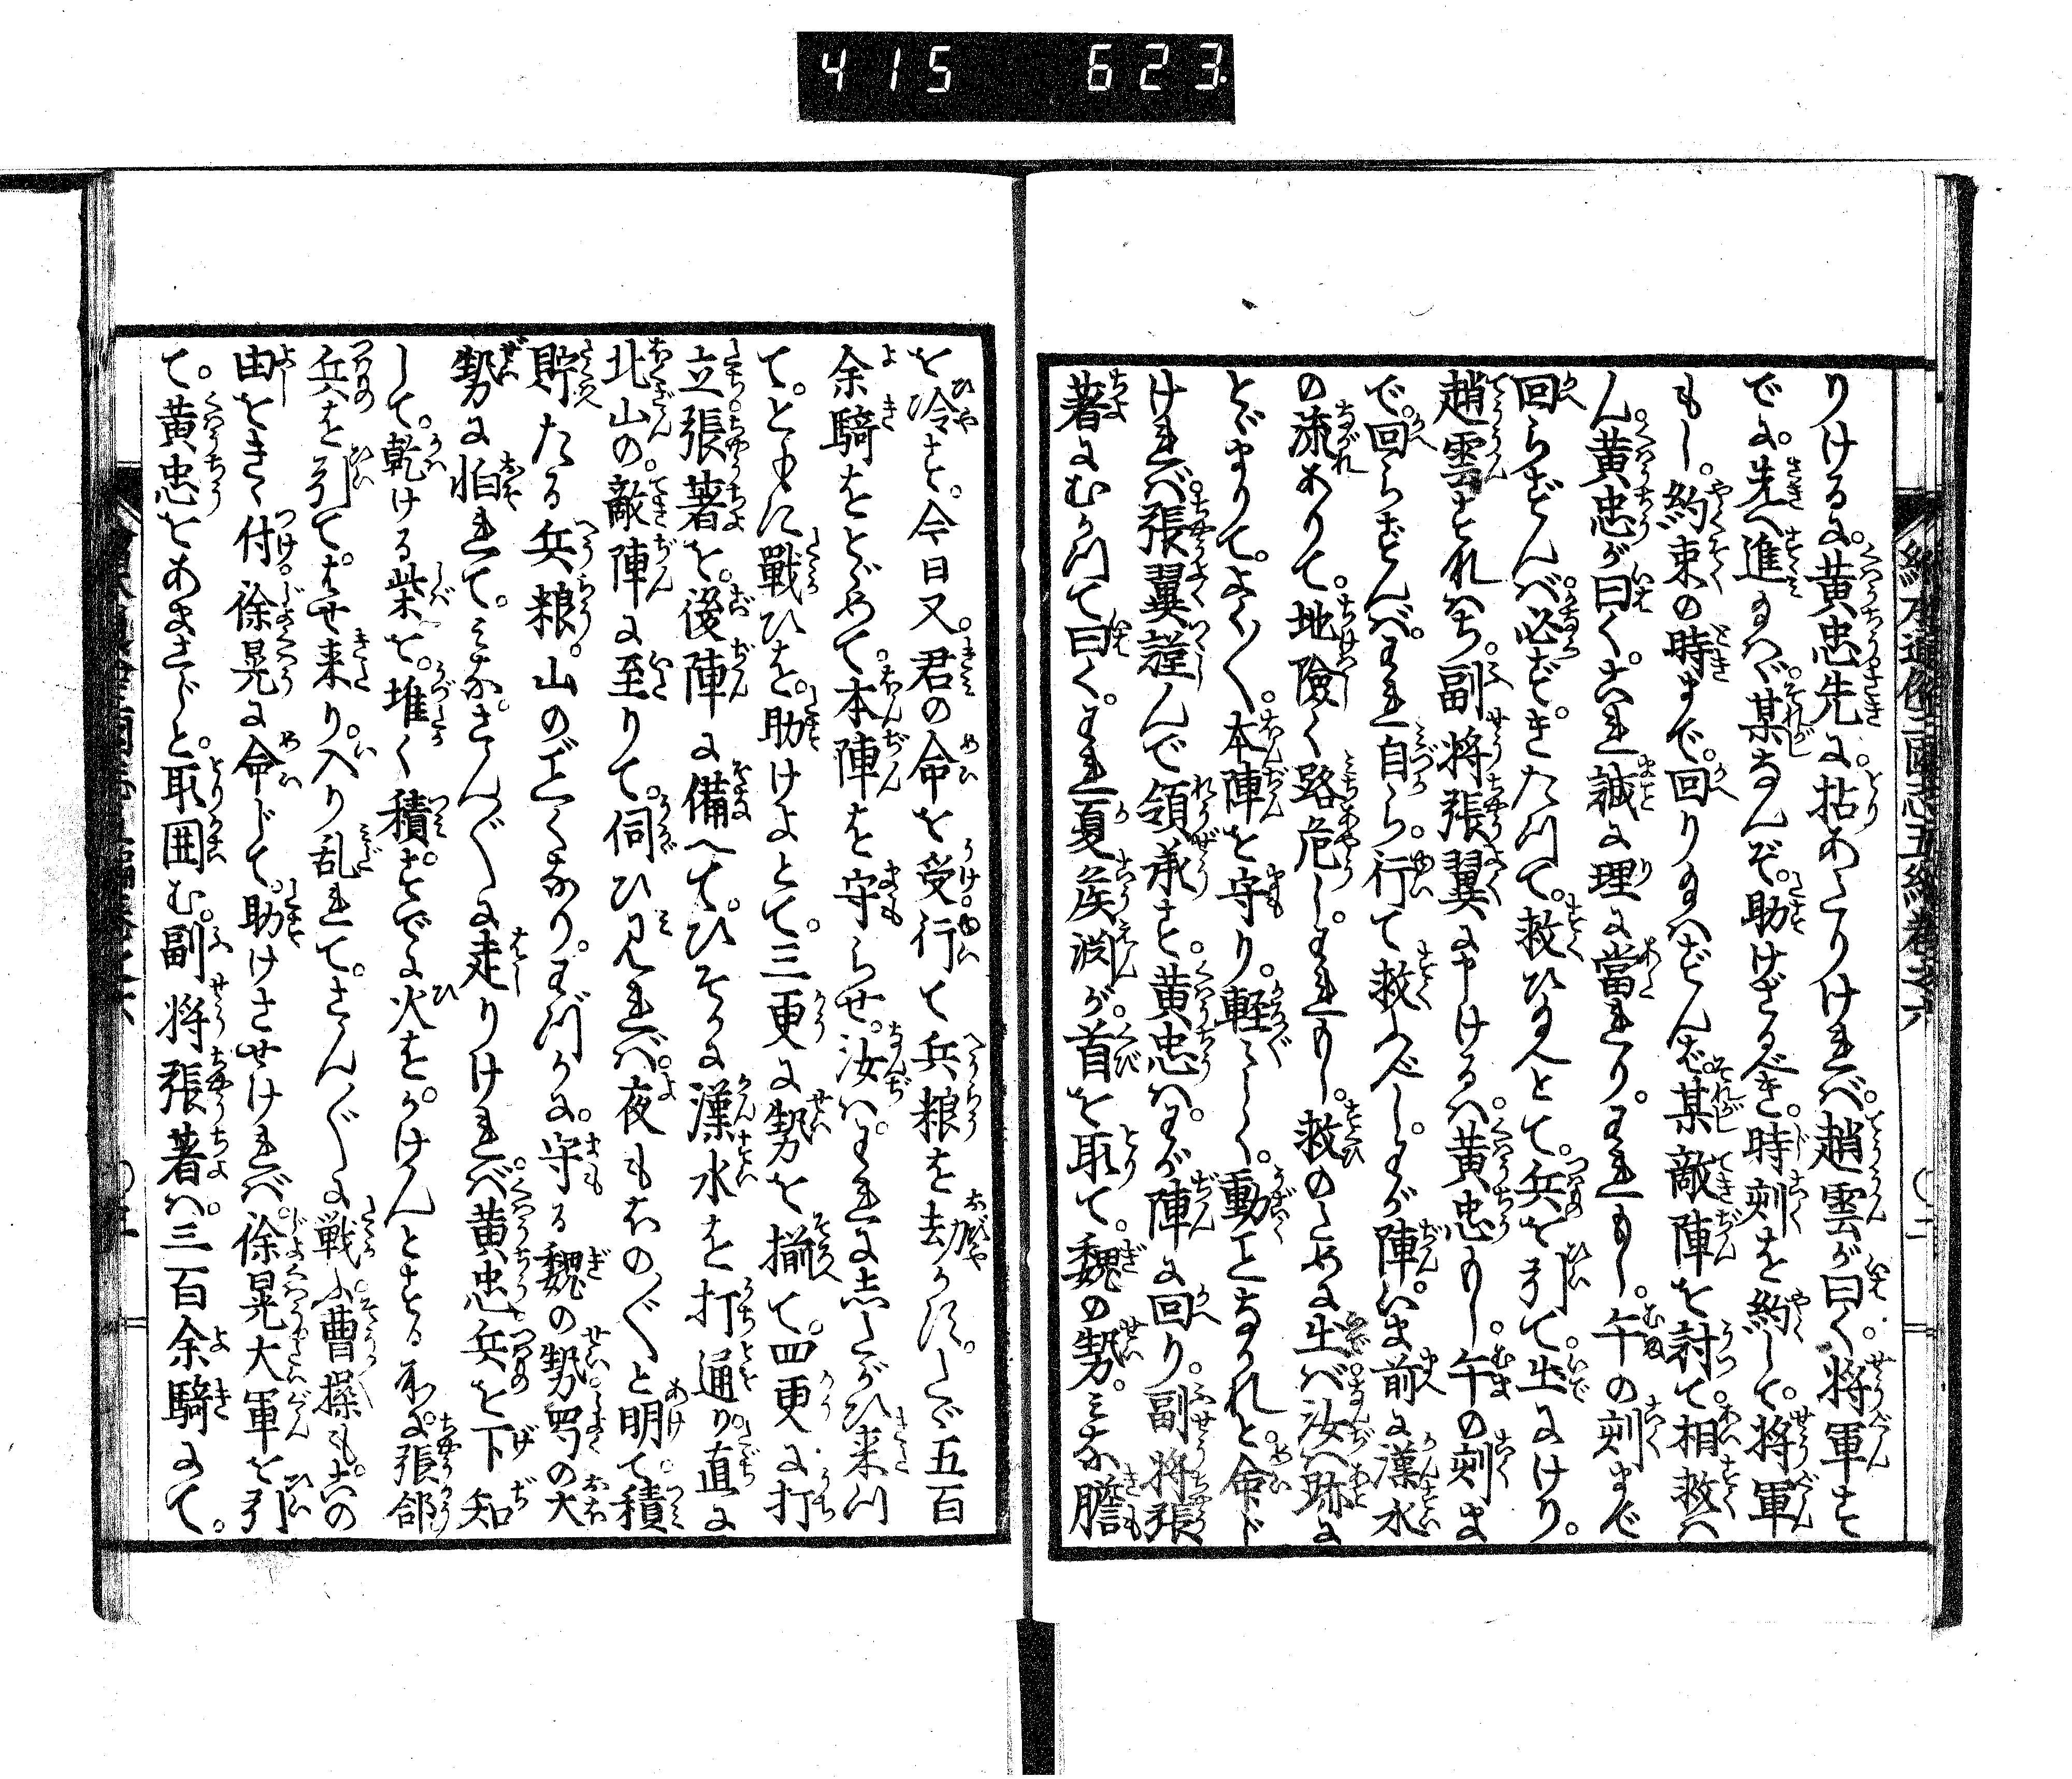 415 623
りけるに。黄忠先に。拈あたりけれバ。趙雲が曰く。将軍す
でに。先へ進みたまへバ。某なんぞ。助けざるべき。時刻を約して。将軍
もし。約束の時まで。回りたまハずんバ。某敵陣を討て。相救ハ
ん。黄忠が曰く。これ誠に理に當れり。われもし。午の刻まで
回らずんバ。必ずきたつて。救ひ給へとて。兵を引て。出にけり。
趙雲これハち。副将張翼に申けるハ。黄忠もし。午の刻ま
で。回らずんバ。われ自ら。行て救ふべし。わが陣ハ。前に漢水
の流ありて。地險く路危し。われもし。救のために出バ。汝ハ跡に
とどまりて。よく〳〵。本陣を守り。軽〴〵しく。動ことなかれと。命じ
けれバ。張翼謹んで領承す。黄忠ハ。わが陣に回り。副将張
著にむかつて曰く。われ夏侯渕が。首を取て。魏の勢。みな膽
を冷す。今日又。君の命を受。行て兵粮を刧かす。たゞ五百
余騎をとゞめて。本陣を守らせ。汝ハ。われにしたがひ来つ
て。ともに戰ひを。助けよとて。三更に勢を揃て。四更に打
立。張著を。後陣に備へて。ひそかに漢水を打通り。直に
北山の。敵陣に至りて。伺ひ見れバ。夜もほの〴〵と明て。積
貯たる兵粮。山のごとくなり。わづかに。守る魏の勢。蜀の大
勢に怕れて。みな。さん〴〵に走りけれバ。黄忠。兵を下知
して。乾ける柴を。堆く積。すでに火を。かけんとする所に。張郃
兵を引て。はせ来り。入り乱れて。さん〴〵に戦ふ。曹操も。この
由をきゝ付。徐晃に命じて。助けさせけれバ。徐晃大軍を引
て。黄忠をあまさじと。取囲む。副将張著ハ。三百余騎にて。